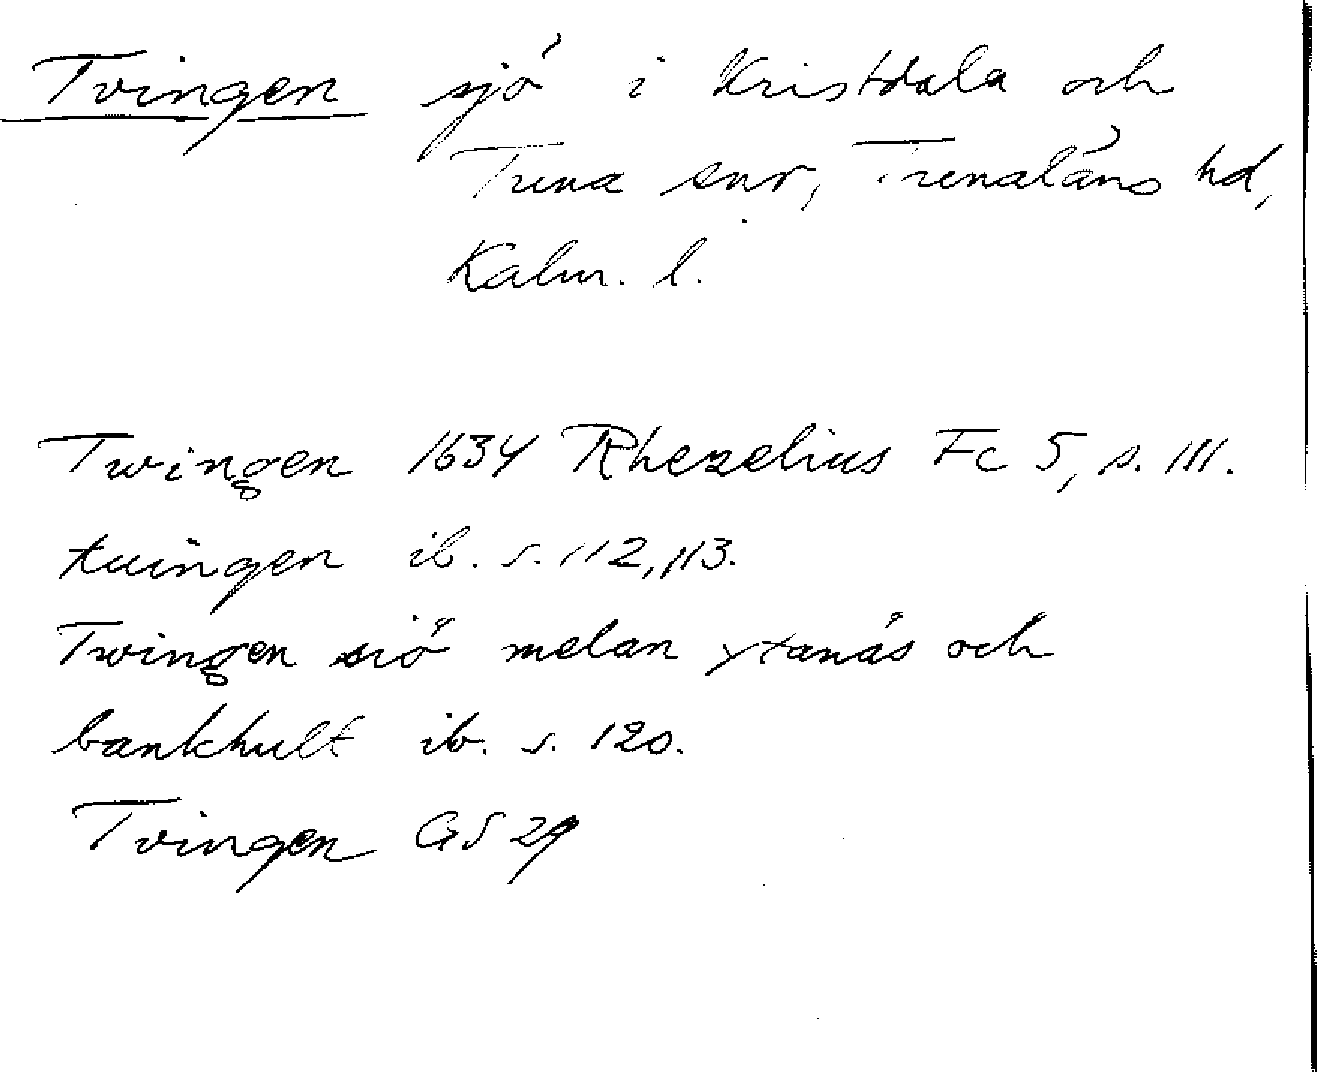 Tvingen sjö i Kristdala och
Tuna snr, Tunaläns hd,
Kalm. l.
Twingen 1634 Rhezelius Fc 5, s. 111.
tuingen ib. s. 112, 113.
Twingen siö melan ytanäs och
bankhult ib. s. 120.
Tvingen GS 29